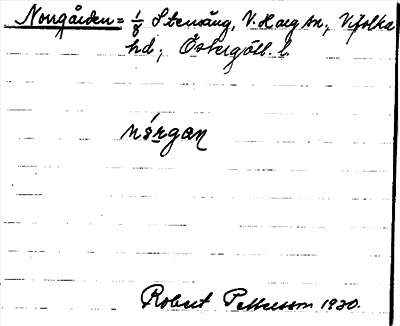 Norrgården = 1/8 Stensäng, V. Harg sn, Vifolka
hd, Östergötl. l.
nórgan
Robert Pettersson 1930.